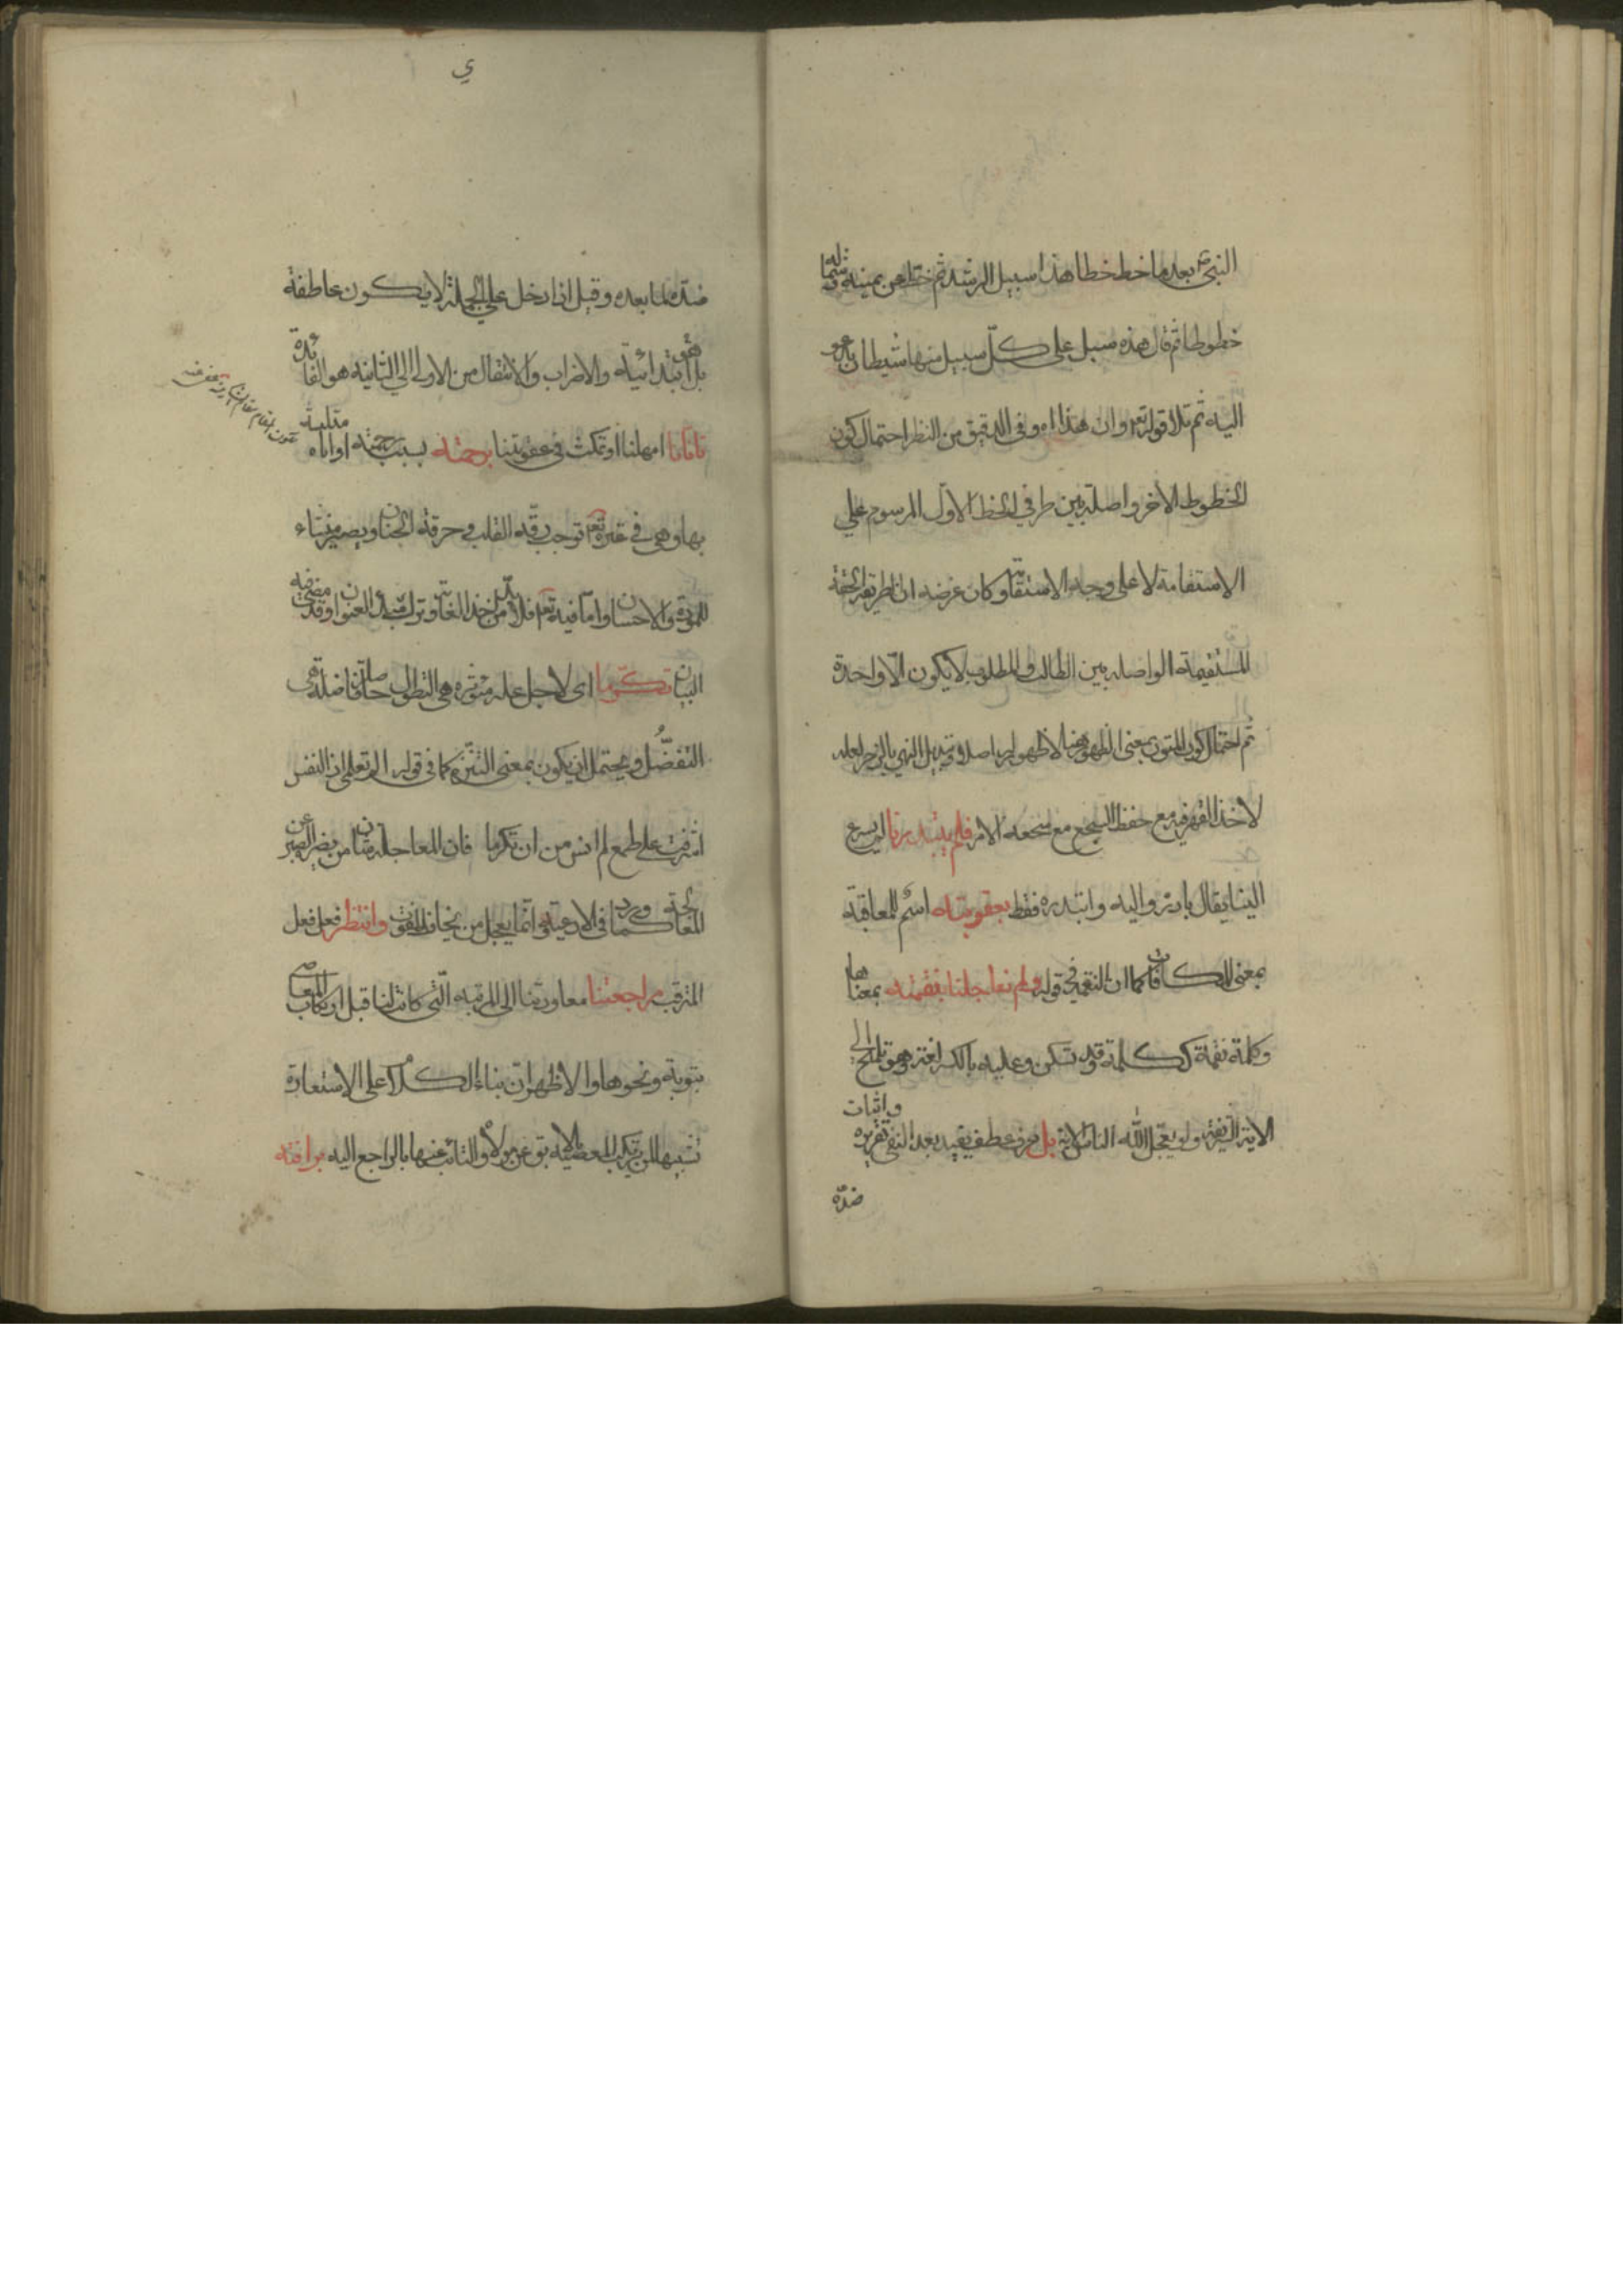 النبي ص بعد ما خط خطا هذا سبيل الرشد ثم خط عن يمينه وشماله
خطوطا ثم قال هذه سبل على كل سبيل منها شيطان يدعو
اليه ثم تلا قوله تع وان هذا اه وفي الدقيق من النظر احتمال كون
الخطوط الاخر واصلة بين طرفي الخط الاول المرسوم علي
الاستقامة لا على وجه الاستقامة وكان غرضه ان الطريقة الحقة
المستقيمة الواصله بين الطالب والمطلوب لا يكون الا واحدة
ثم احتمال كون المتون بمعنى الظهور هنا لا ظهور له اصلا وتبديل النهي بالزجر لعله
لاخذ القهر فيه مع حفظ السجع مع الامر فلم يبتدرنا لم يسرع
الينا يقال بادره واليه وابتدره فقط بعقوبته اسم للمعاقبة
بمعنى المكافات كما ان النقمة في قوله ولم يعاجلنا بنقمته بمعناها
وكلمة نقمة ككلمة وقد تسكن وعليه بالكسر لغة وهو تلميح الى
الاية الشريفة ولو يعجل الله للناس الاية بل حرف عطف يفيد بعد النفي تقريره واثبات
ضده
ي
ضده لما بعده وقيل اذا دخل على الجملة لا يكون عاطفة
بل هو ابتدائية والاضراب والانتقال من الاولى الي الثانيه هو الفائدة
تانانا امهلنا او تمكث في عقوبتنا برحمته بسبب رحمته او اناه متلبسة
بها وهي في غيره تع توجب رقة القلب وحرقة الجنان ويصير منشاء
للمودة والاحسان واما فيه تع فلا بد من اخذ الغايات وترك المبادي
البيان تكرما اى لاجل علة مؤثره هي التطول
التفضل ويحتمل ان يكون بمعنى التنزه كما في قوله الم تعلمي ان النفس
اشرفت على طمع لم انس من ان تكرما فان المعاجلة
كما ورد في الادعية وانما يعجل من يخاف الفوت وانتظر فعل فعل
المترقب مراجعتنا معاودتنا الى المرتبه التى كانت لنا قبل ارتكاب المعاصي
بتوبة ونحوها والاظهر ان بناء الكلام على الاستعارة
تشبيها لمن يرتكب المعصية بالآبق عن مولاه والتائب عنها بالراجع اليه برافته